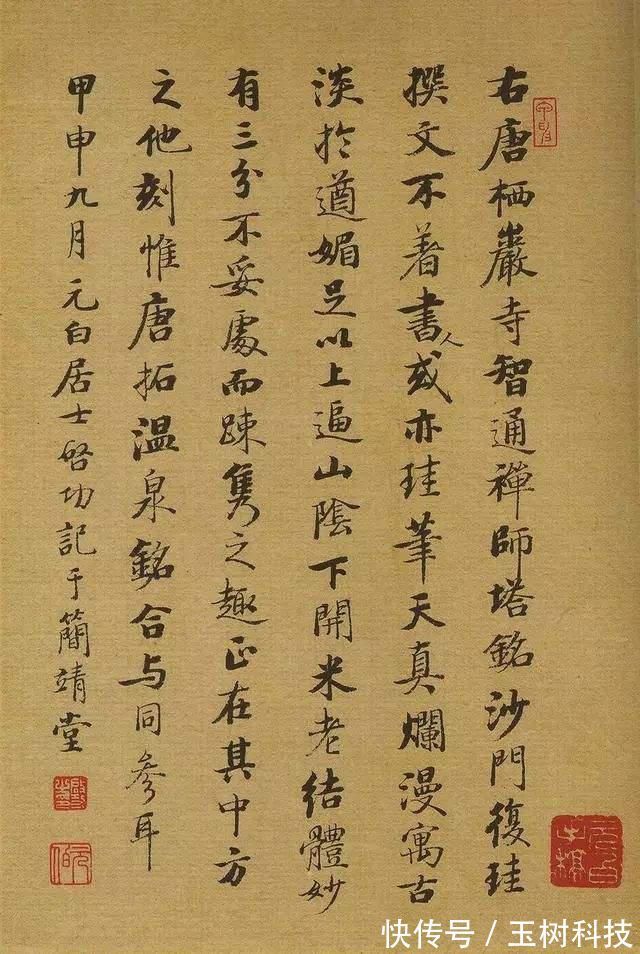 右唐栖巖寺智通禪師塔銘沙門復珪
撰文不著書人或亦珪筆天真爛漫寓古
淡於遒媚足以上逼山陰下開米老結體妙
有三分不妥處而踈雋之趣正在其中方
之他刻惟唐拓温泉銘合与同參耳
甲申九月元白居士啓功記于簡靖堂
快传号/玉树科技